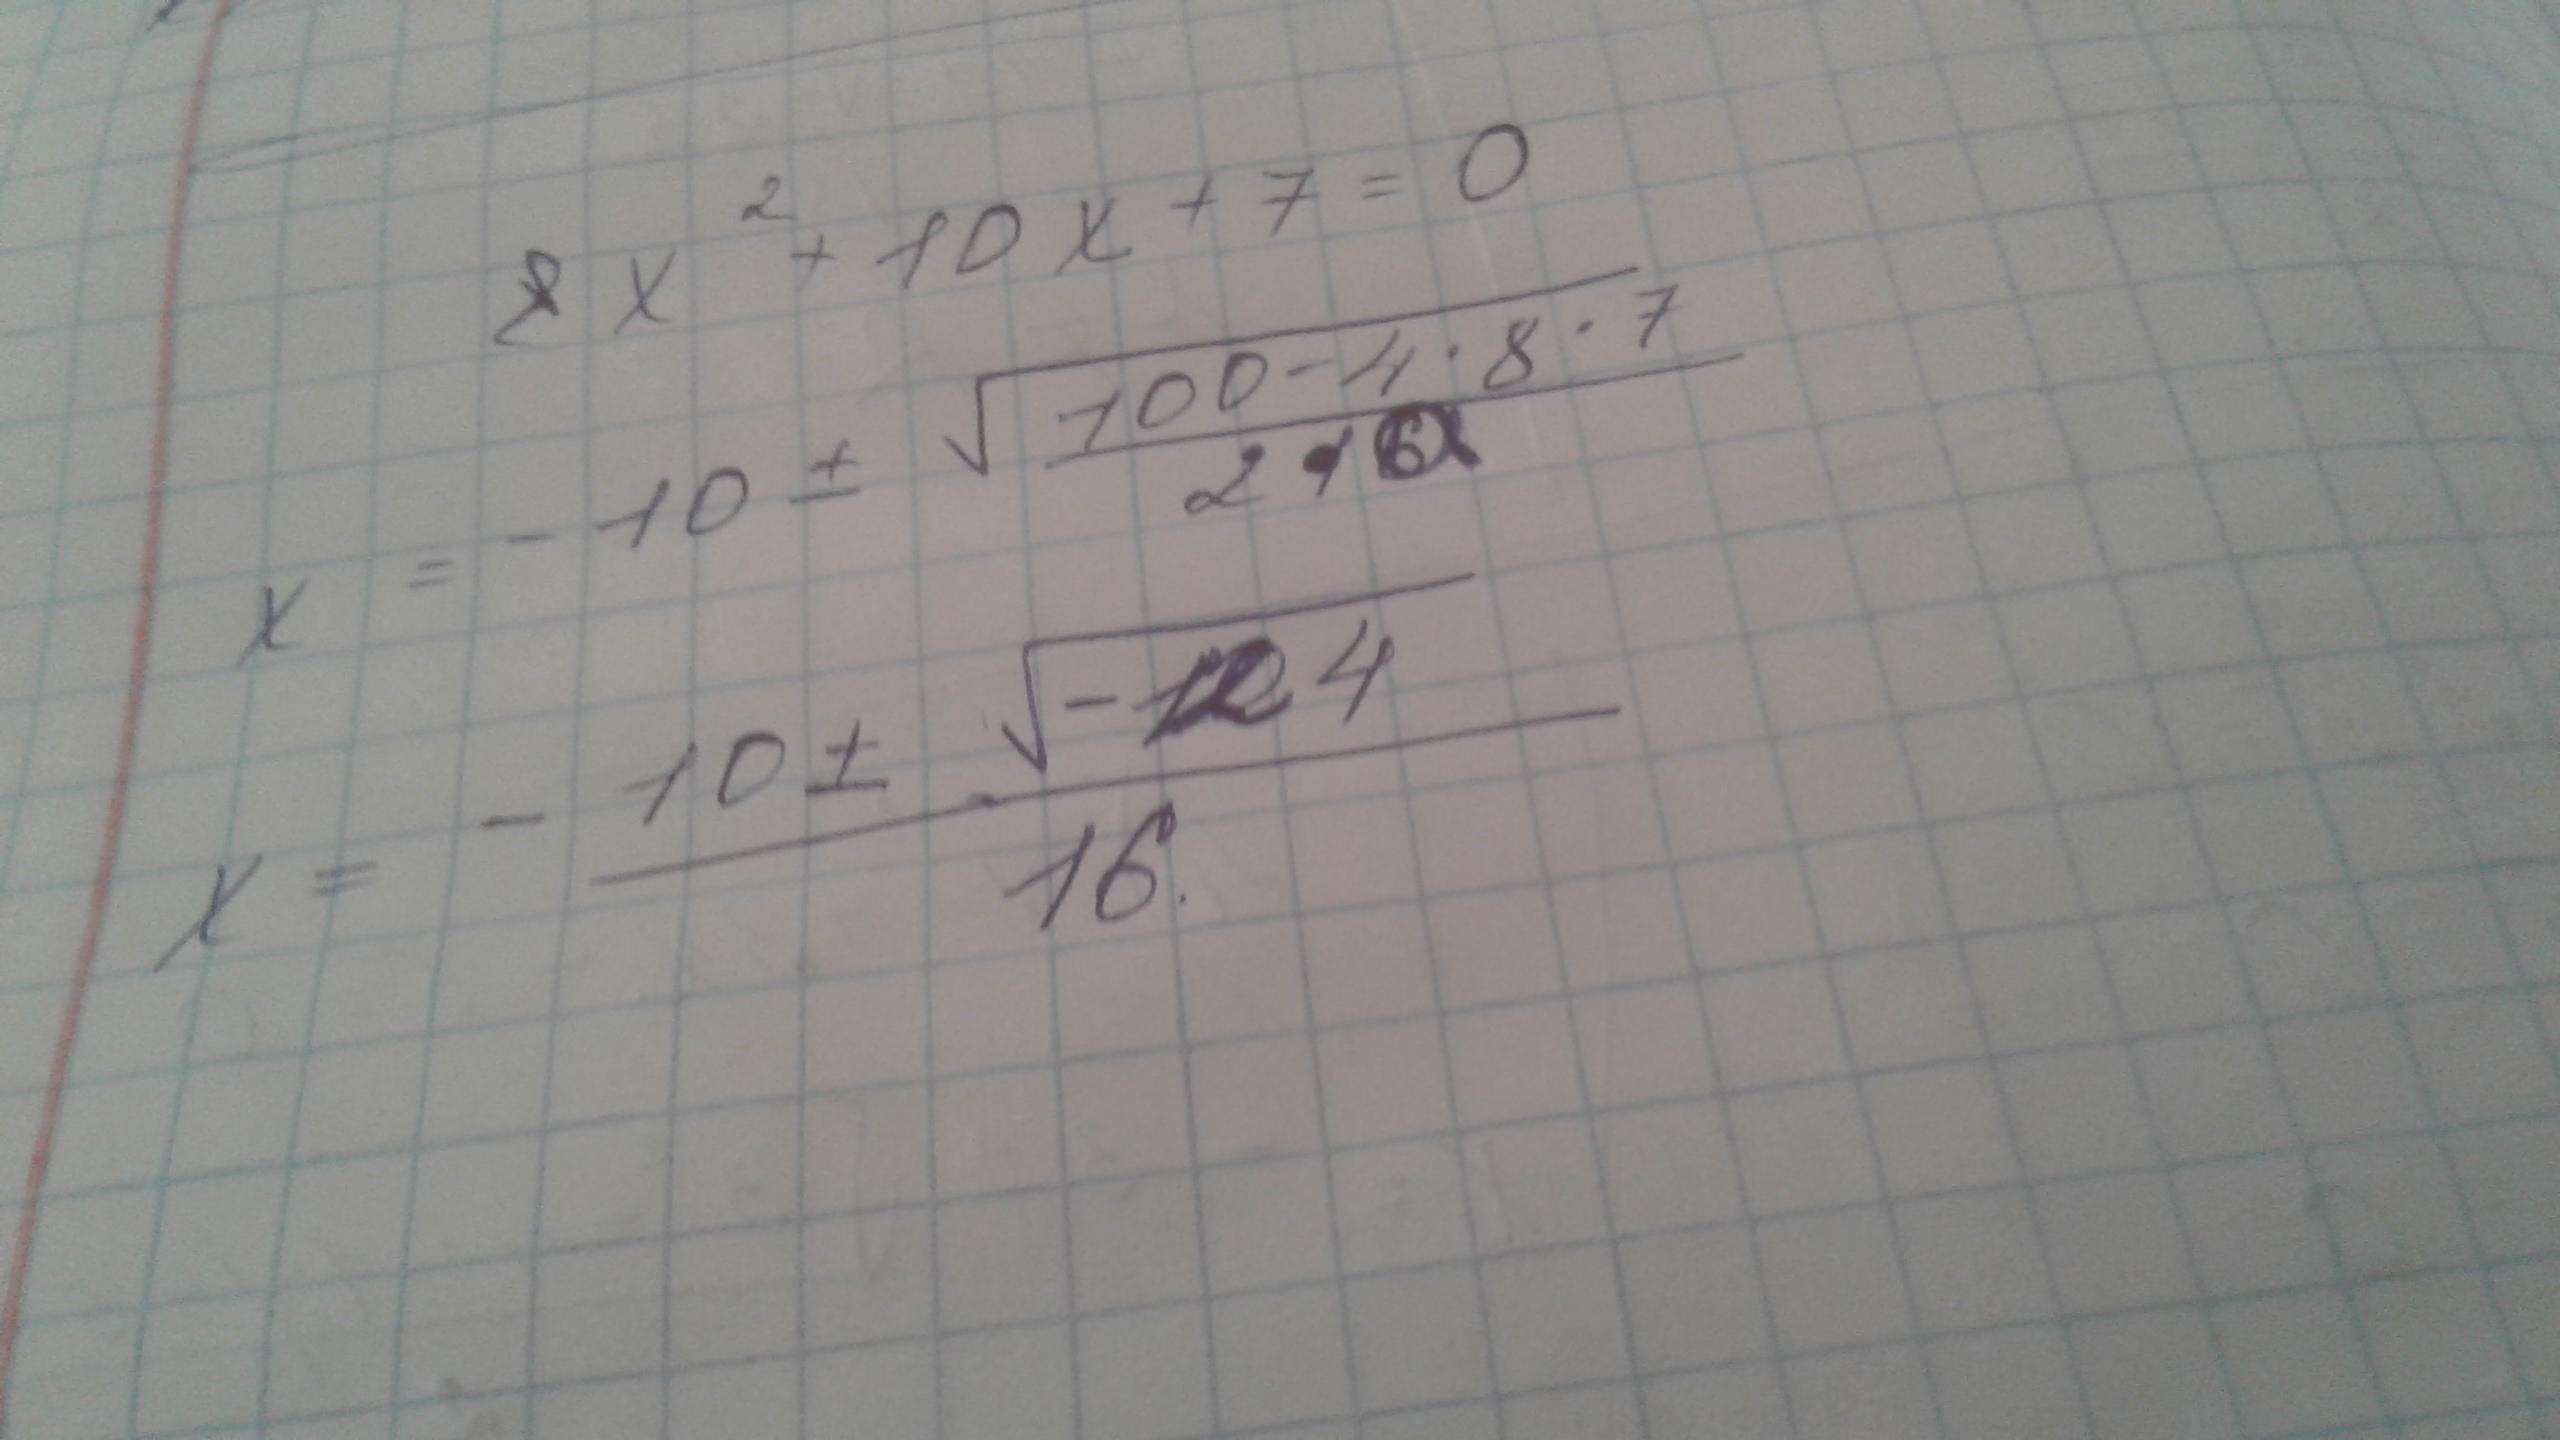 8x² + 10x + 7 = 0
x = -10 ± √100 - 4 · 8 · 7 / 2
x = - 10 ± √-124 / 16.